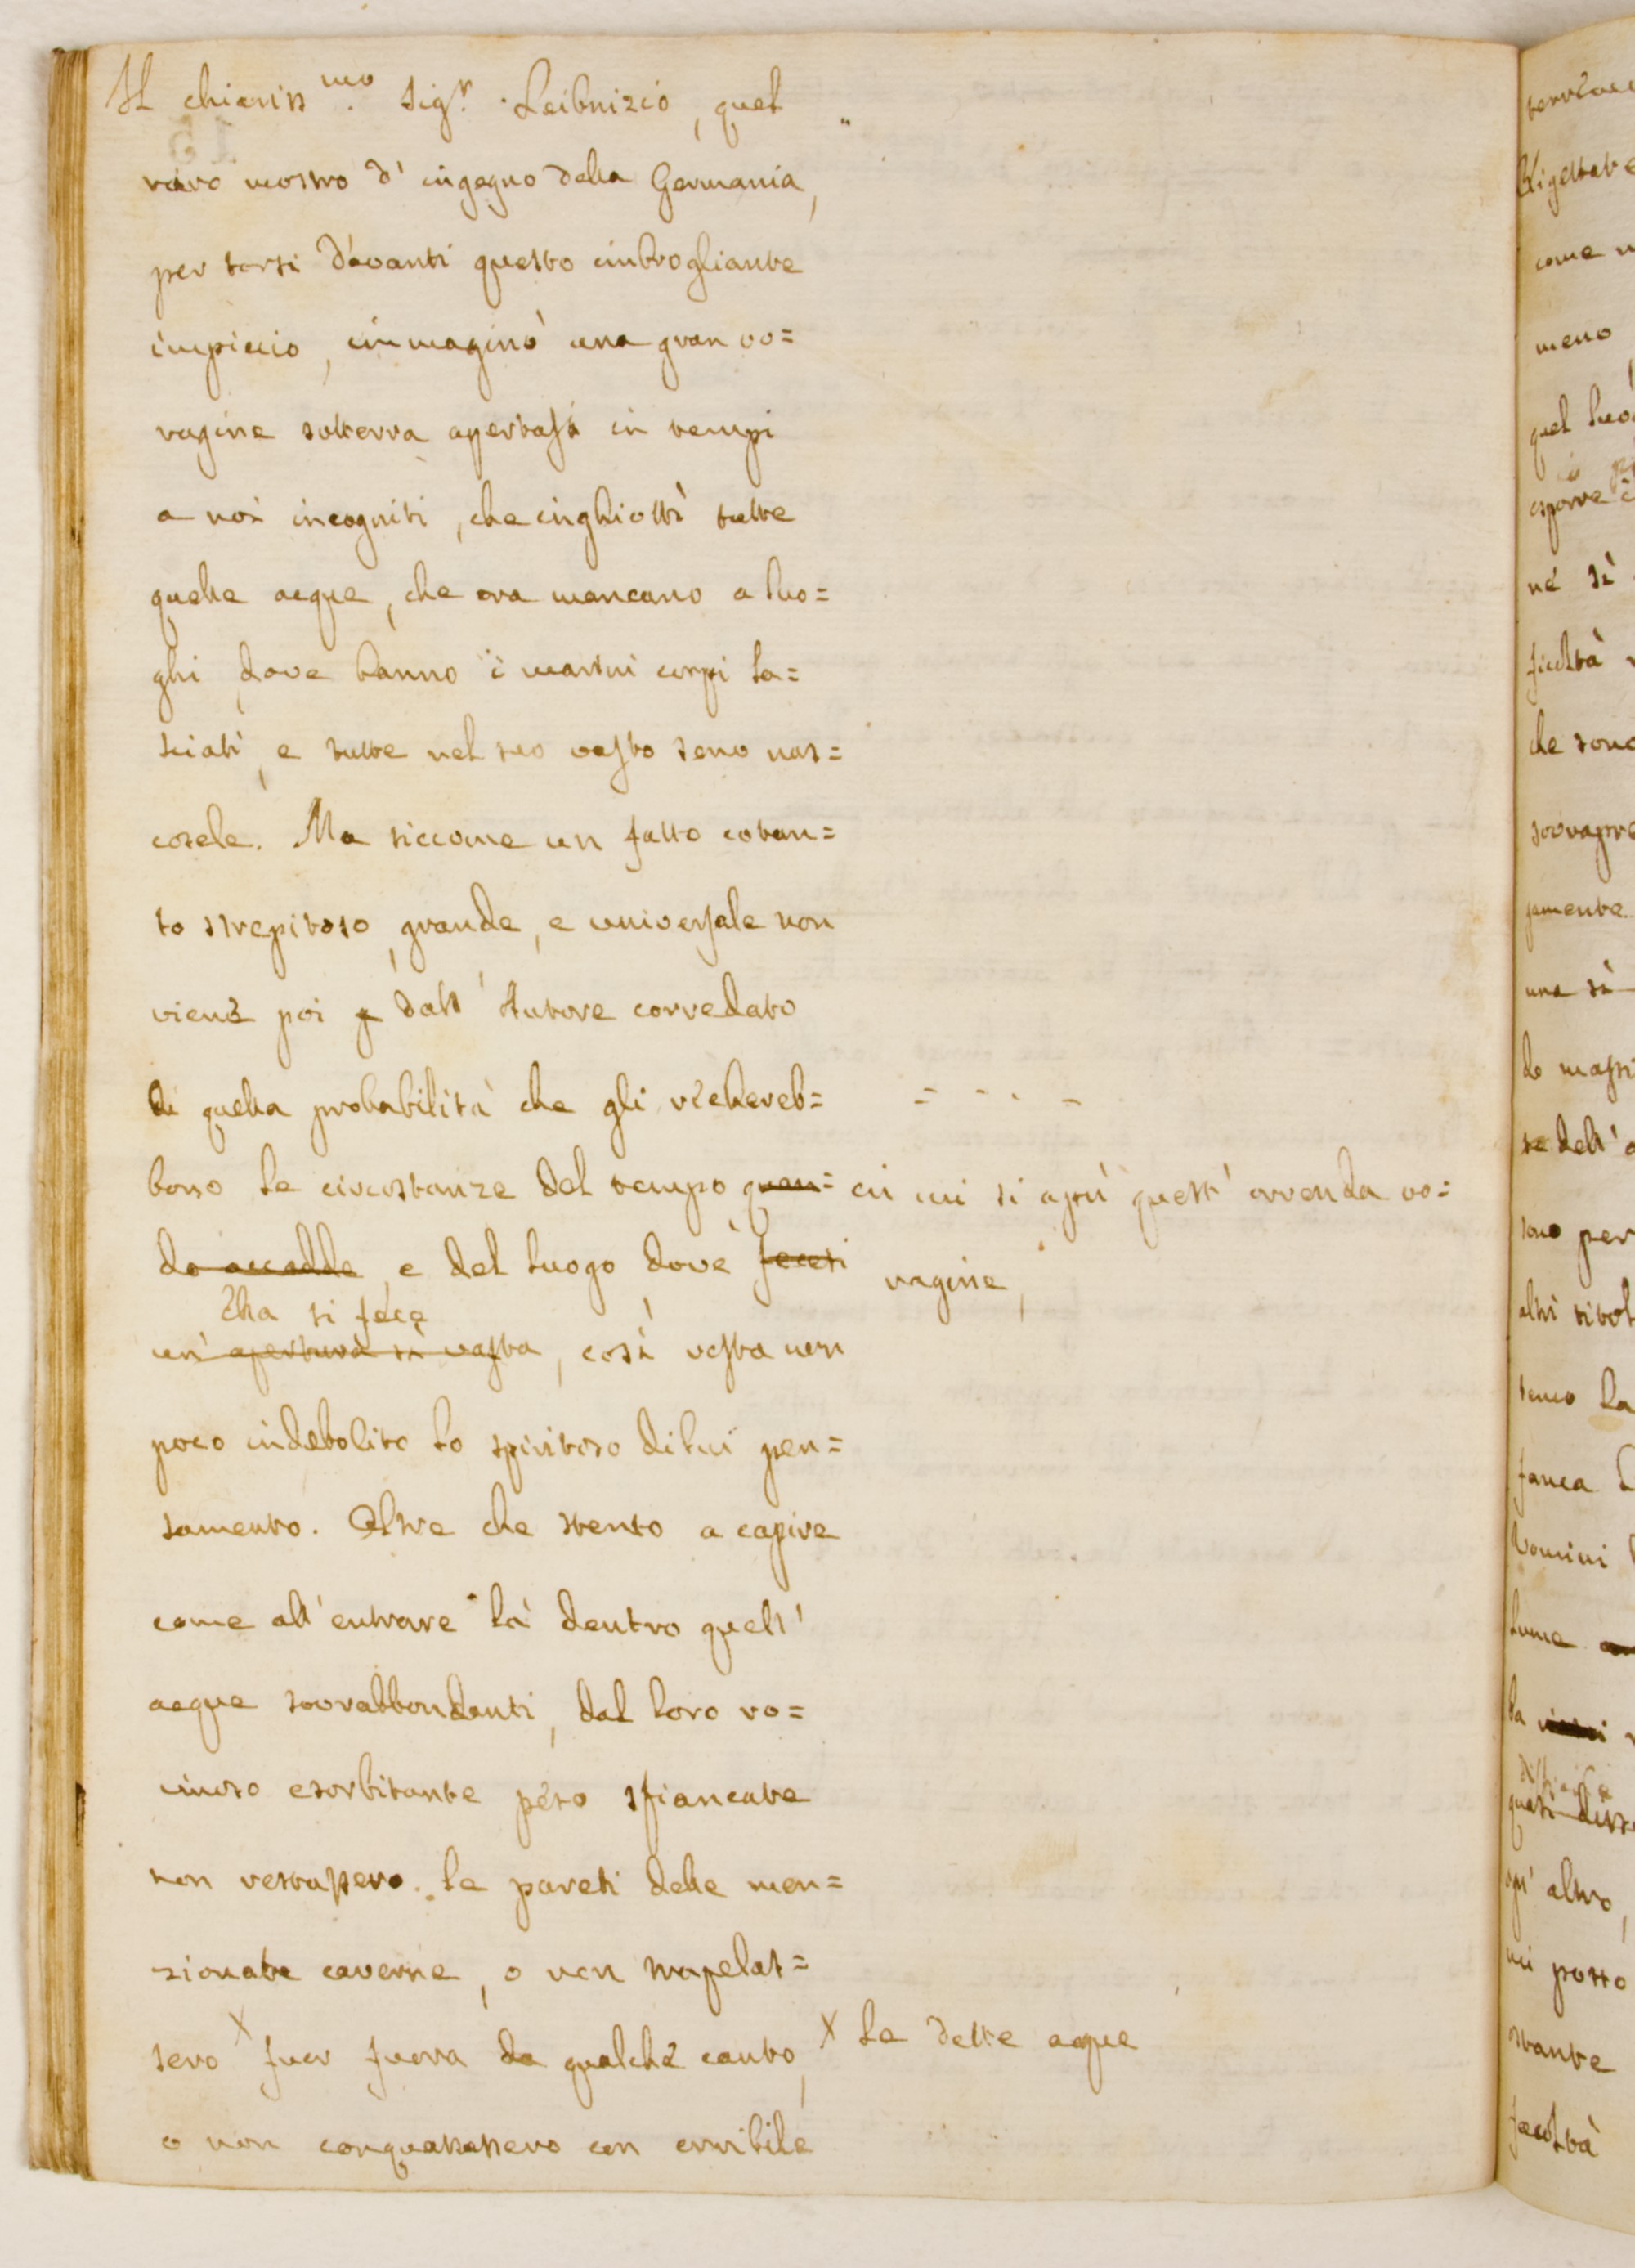 Il chiariss.mo Sig.r Leibnizio, quel
raro mostro d' ingegno della Germania,
per torsi d'avanti questo imbrogliante
impiccio, immaginò una gran vo=
ragine sotterra apertasi in tempi
a noi incogniti, che inghiottì tutte
quelle acque, che ora mancano a luo=
ghi dove hanno i marini corpi la=
sciati, e tutte nel suo vasto seno nas=
cosele. Ma siccome un fatto cotan=
to strepitoso, grande, e universale non
viene poi dall' Autore corredato
di quella probabilità che gli
bono le circostanze del tempo quan= in cui si aprì quest' orrenda vo=
do accadde, e del luogo dove fecesi ragine,
Ella si fece
un' apertura sì vasta, così resta un
poco indebolito lo spiritoso di lui pen=
samento. Oltre che stento a capire
come all' entrare là dentro quell'
acque sovrabbondanti, dal loro ro=
vinoso esorbitante peso sfiancate
non restassero le pareti delle men=
zionate caverne, o non trapelas=
sero X fuor fuora da qualche canto, X le dette acque
o non conquassassero con orribile
terr
Rigettare
come
meno
quel luo
esporre
né sì
ficoltà
che sono
sovrapre
samente
una sì
do massi
te dell'
sono per
altri
la
Uomini
lume
la
quasi
ogn' altro,
mi posso
stante
facoltà